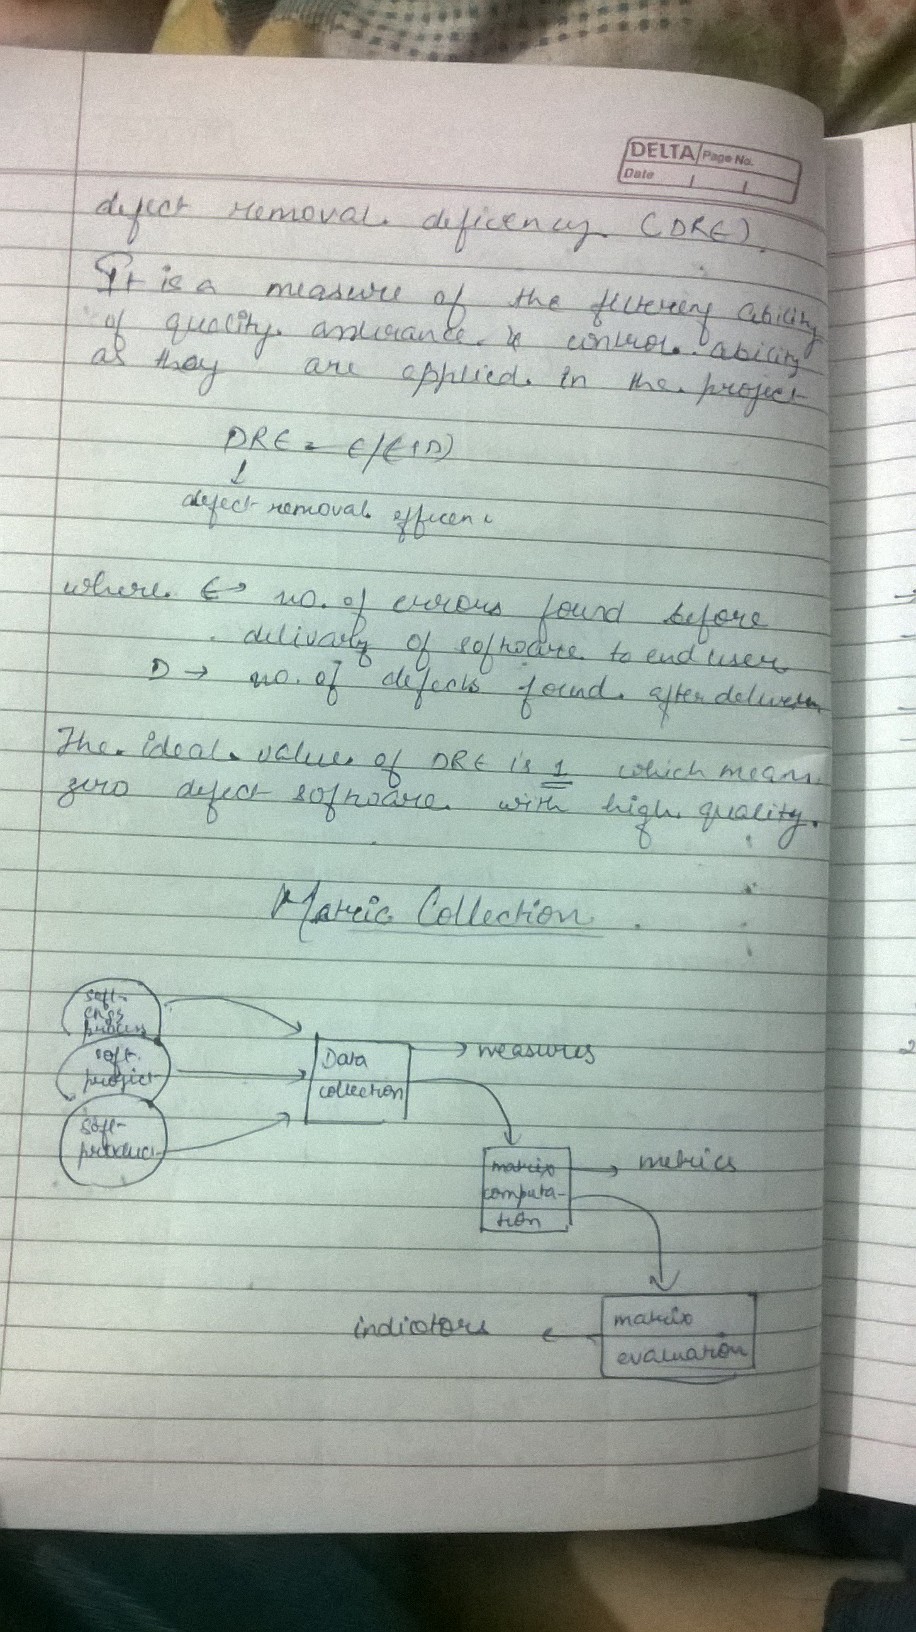 DELTA Page No.
Date / /
defect removal deficency (DRE).
It is a measure of the filtering ability
of quality assurance & control ability
as they are applied in the project
DRE = E/(E+D)
↓
defect removal efficenc
where E → no. of errors found before
delivary of software to end user
D → no. of defects found after delivery
The ideal value of DRE is 1 which means
zero defect software with high quality.
Matric Collection
soft-
engg
process
soft.
project
soft-
product
Data
collection
→ measures
matrix
computa-
tion
→ metrics
matrix
evaluation
indicators ←
2